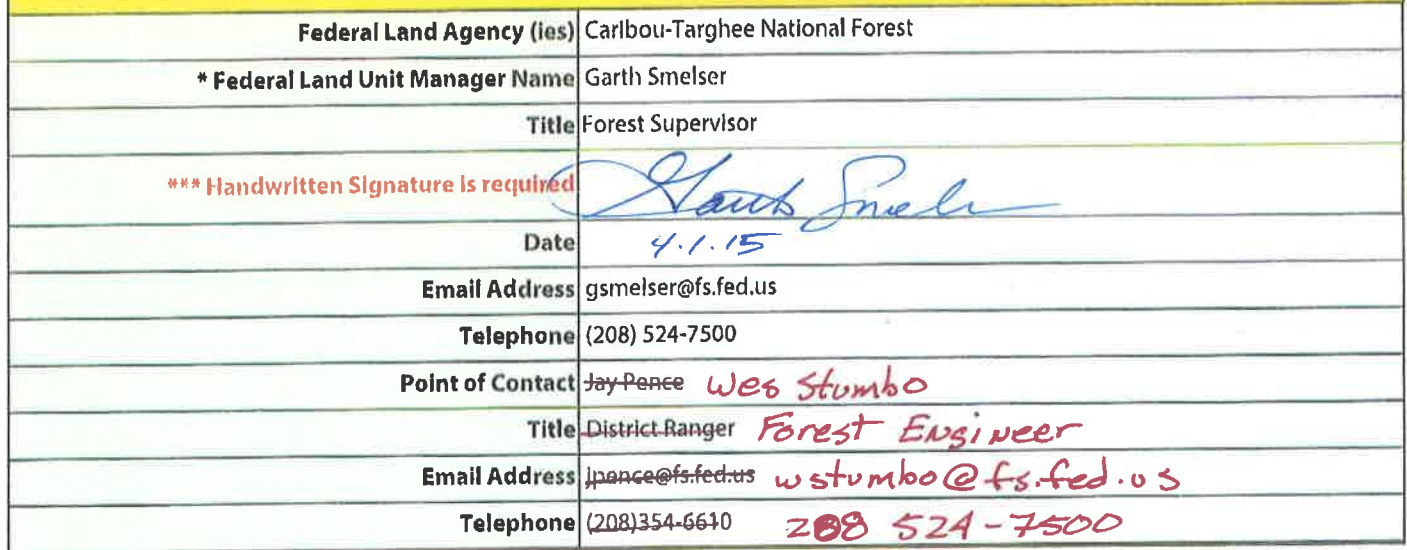 Federal Land Agency (ies) Caribou-Targhee National Forest
* Federal Land Unit Manager Name Garth Smelser
Title Forest Supervisor
*** Handwritten Signature is required Garth Smelser
Date 4.1.15
Email Address gsmelser@fs.fed.us
Telephone (208) 524-7500
Point of Contact Jay Pence Wes Stumbo
Title District Ranger Forest Engineer
Email Address jpence@fs.fed.us wstumbo@fs.fed.us
Telephone (208)354-6610 208 524-7500